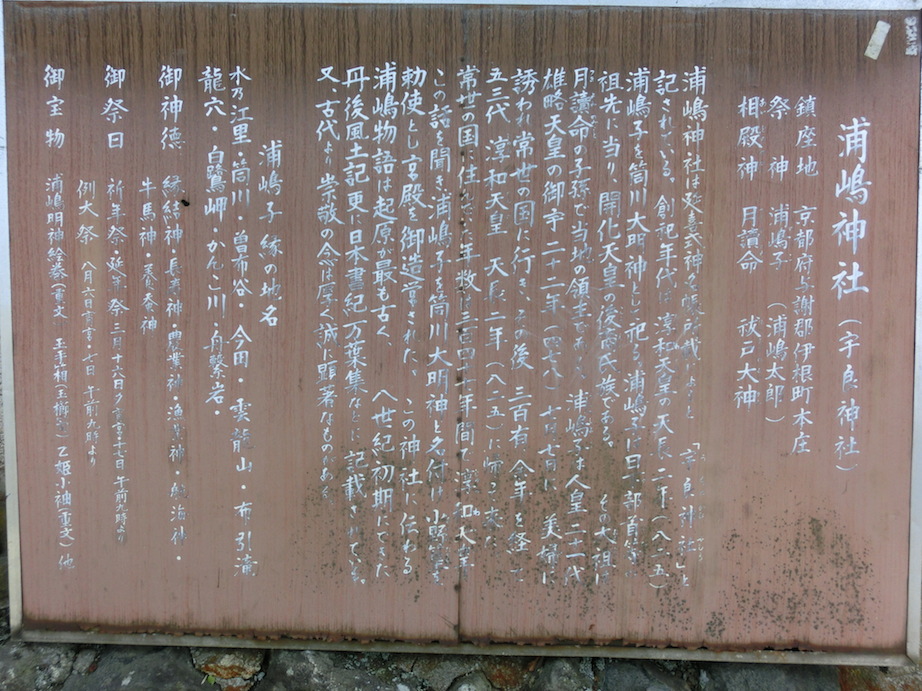 浦嶋神社（宇良神社）
鎮座地　京都府与謝郡伊根町本庄
祭　神　浦嶋子（浦嶋太郎）
相殿神　月讀命　祓戸大神
浦嶋神社は延喜式神名帳所載によると「宇良神社」と
記されている。創祀年代は淳和天皇の天長二年（八二五）
浦嶋子を筒川大明神として祀る。浦嶋子は日下部首等の
祖先に当り、開化天皇の後裔氏族である。その太祖は
月讀命の子孫で当地の領主であり、浦嶋子は人皇二十一代
雄略天皇の御宇二十二年（四七八）七月七日に美婦に
誘われ常世の国に行き、その後三百有余年を経て
五三代淳和天皇　天長二年（八二五）に帰って来た
常世の国に住んでいた年数は三百四十七年間で淳和天皇
この話を聞き浦嶋子を筒川大明神と名付け小野篁を
勅使とし宮殿を御造営された。この神社に伝わる
浦嶋物語は起原が最も古く、八世紀初期にできた
丹後風土記更に日本書紀万葉集などに記載されている。
又、古代より崇敬の念は厚く誠に顕著なものがある
浦嶋子縁の地名
水乃江里・筒川・曽布谷・今田・雲龍山・布引滝
龍穴・白鷺岬・かんこ川・舟繋岩・
御神徳　縁結神・長寿神・農業神・漁業神・航海神・
牛馬神・養蚕神
御祭日　祈年祭・延年祭　三月十六日
例大祭　八月
御宝物　浦嶋明神絵巻（重文　玉手箱（玉櫛笥）乙姫小袖（重文）他